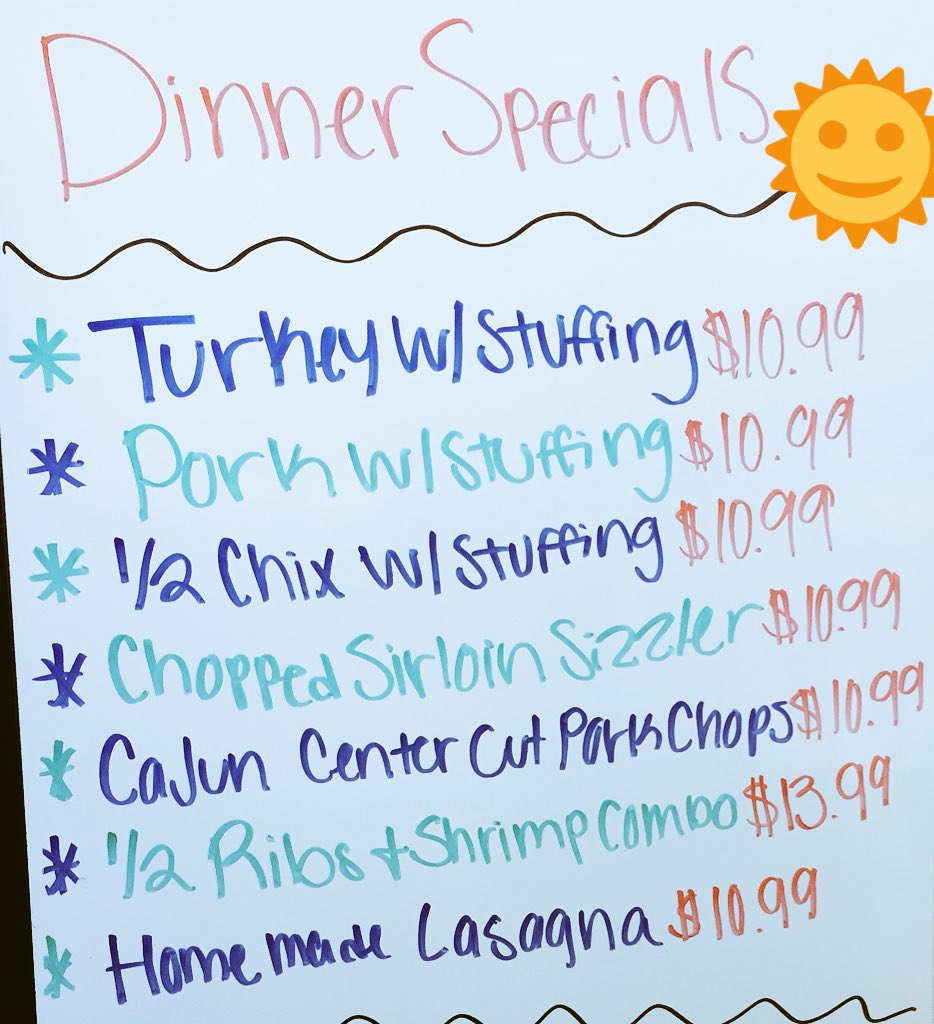 Dinner Specials
* Turkey w/ Stuffing $10.99
* Pork w/ Stuffing $10.99
* 1/2 Chix w/ Stuffing $10.99
* Chopped Sirloin Sizzler $10.99
* Cajun Center Cut Pork Chops $10.99
* 1/2 Ribs + Shrimp Combo $13.99
* Homemade Lasagna $10.99